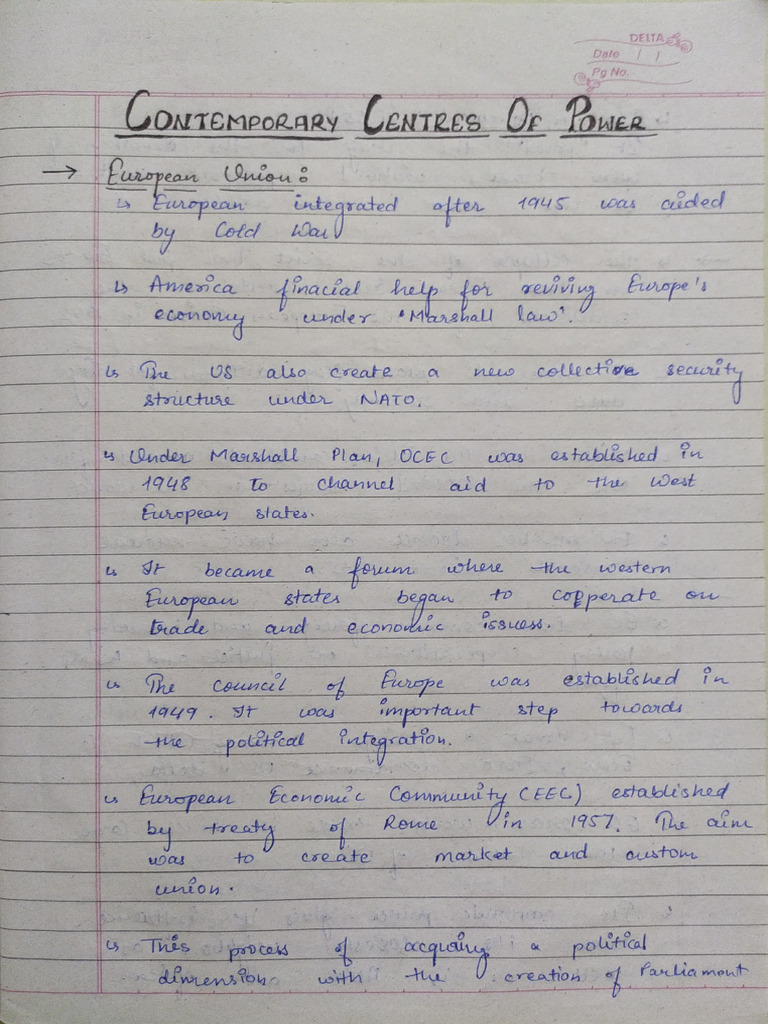 DELTA
Date / /
Pg No.
CONTEMPORARY CENTRES OF POWER
→ European Union:
↳ European integrated after 1945 was aided
by Cold War
↳ America finacial help for reviving Europe's
economy under 'Marshall law'.
↳ The US also create a new collective security
structure under NATO.
↳ Under Marshall Plan, OCEC was established in
1948 to channel aid to the West
European states.
↳ It became a forum where the western
European states began to copperate on
trade and economic issuess.
↳ The council of Europe was established in
1949. It was important step towards
the political integration.
↳ European Economic Community (EEC) established
by treaty of Rome in 1957. The aim
was to create market and custom
union.
↳ This process of acquiing a political
dimension with the creation of Parliamont